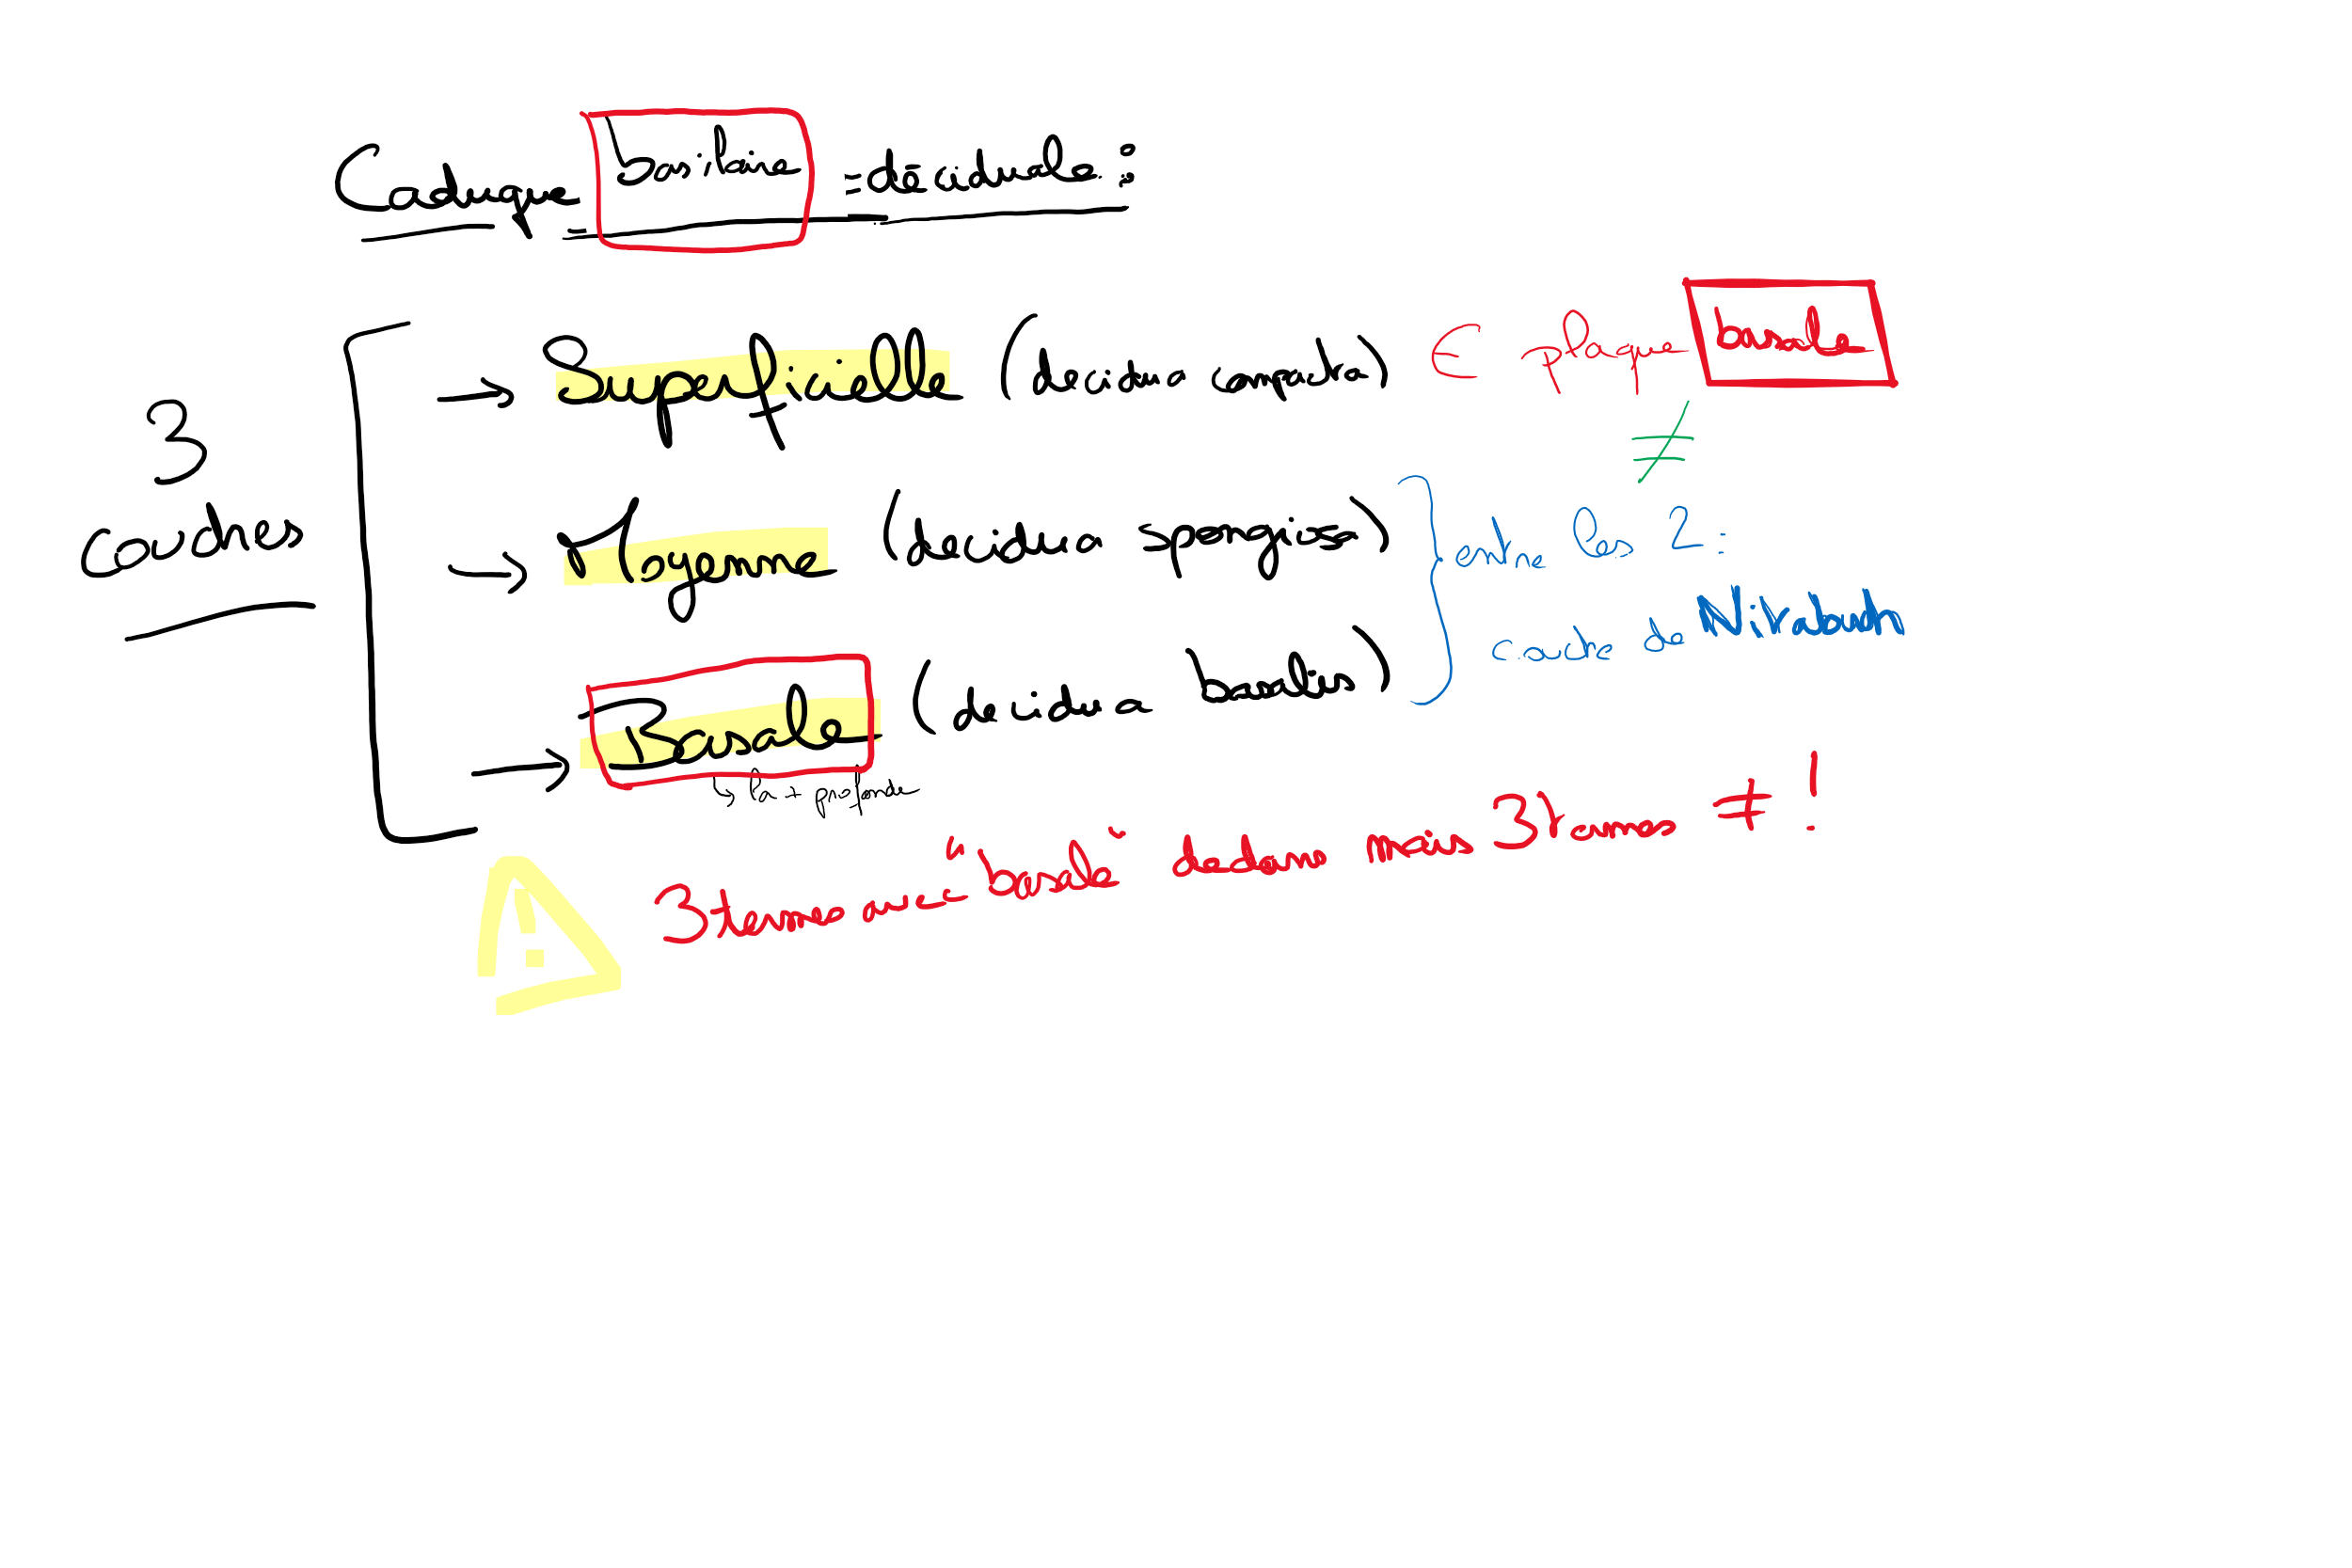 Caduque basilaire = déciduale :
3 couches
→ Superficielle (decidua compacta) ∈ plaque basale
≠
→ Moyenne (decidua spongiosa)
entre les 2 :
couche de Nitabuch
→ Basale (decidua basalis)
↳ la + profonde
3 termes avec "basale" dedans mais 3 termes ≠ !